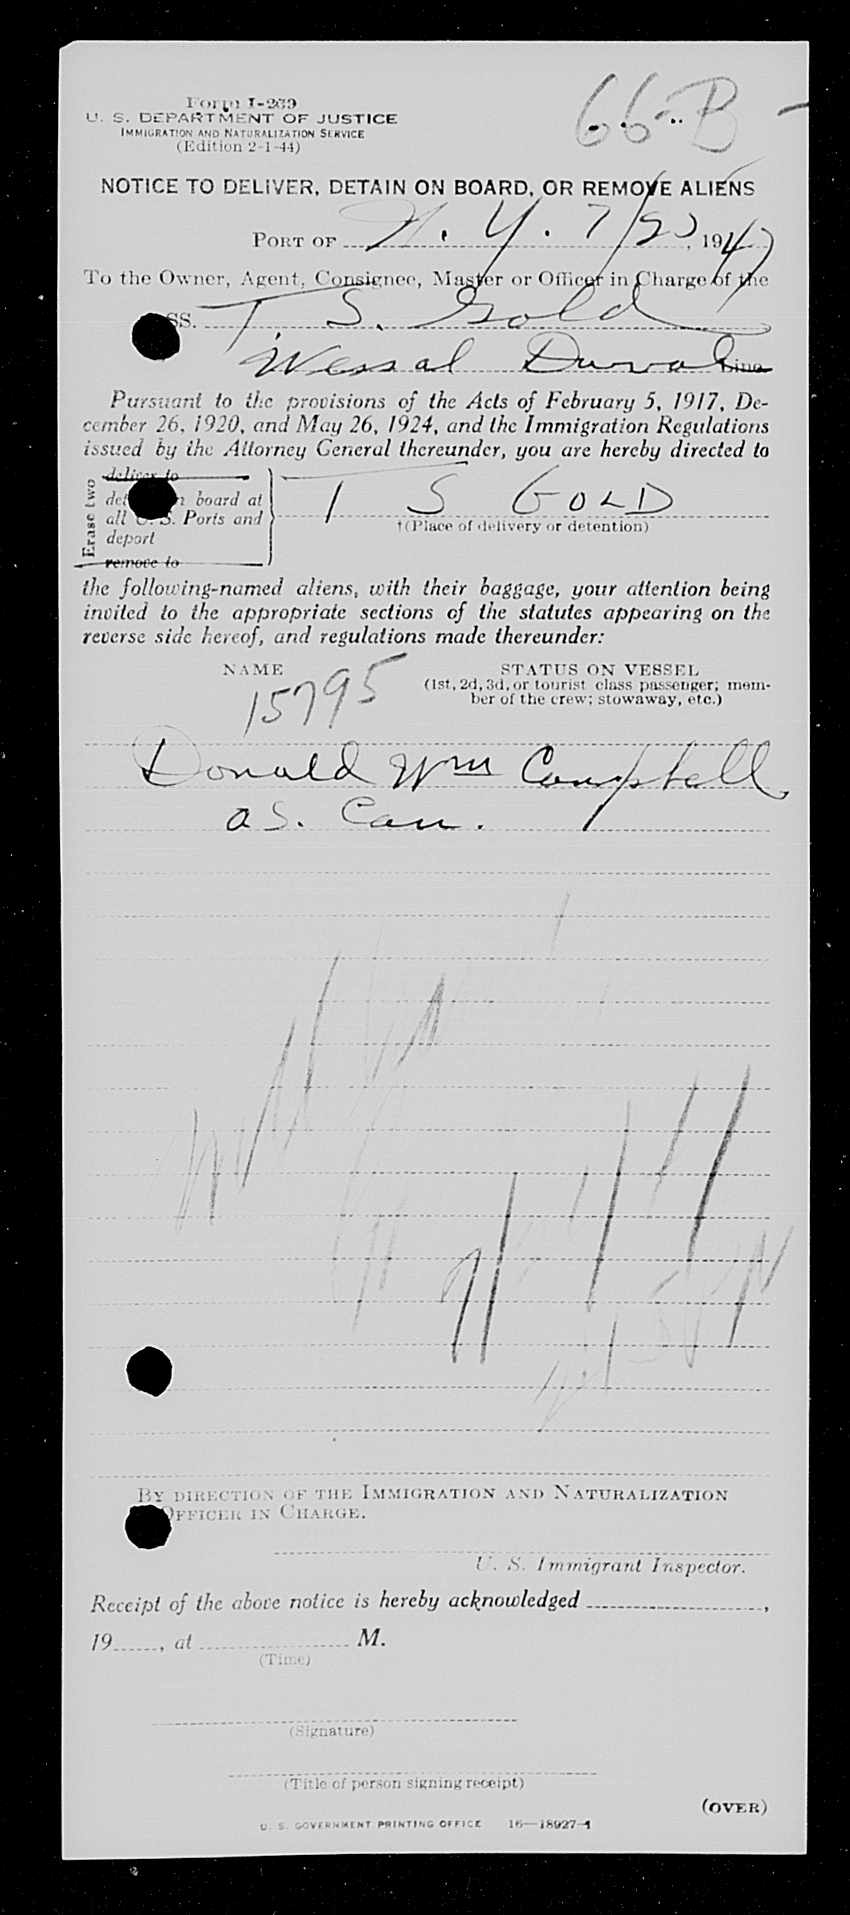 Form I-259
U. S. DEPARTMENT OF JUSTICE
IMMIGRATION AND NATURALIZATION SERVICE
(Edition 2-1-44)
66-B -
NOTICE TO DELIVER, DETAIN ON BOARD, OR REMOVE ALIENS
PORT OF N. Y. 7/20, 1947
To the Owner, Agent, Consignee, Master or Officer in Charge of the
SS. T. S. Gold
Wessal Duval Line
Pursuant to the provisions of the Acts of February 5, 1917, De-
cember 26, 1920, and May 26, 1924, and the Immigration Regulations
issued by the Attorney General thereunder, you are hereby directed to
Erase two
deliver to
board at
all U. S. Ports and
deport
remove to
T S GOLD
†(Place of delivery or detention)
the following-named aliens, with their baggage, your attention being
invited to the appropriate sections of the statutes appearing on the
reverse side hereof, and regulations made thereunder:
NAME
STATUS ON VESSEL
(1st, 2d, 3d, or tourist class passenger; mem-
ber of the crew; stowaway, etc.)
15795
Donald Wm Campbell
OS. Can.
BY DIRECTION OF THE IMMIGRATION AND NATURALIZATION
OFFICER IN CHARGE.
U. S. Immigrant Inspector.
Receipt of the above notice is hereby acknowledged ,
19 , at M.
(Time)
(Signature)
(Title of person signing receipt)
(OVER)
U. S. GOVERNMENT PRINTING OFFICE 16—18927-1